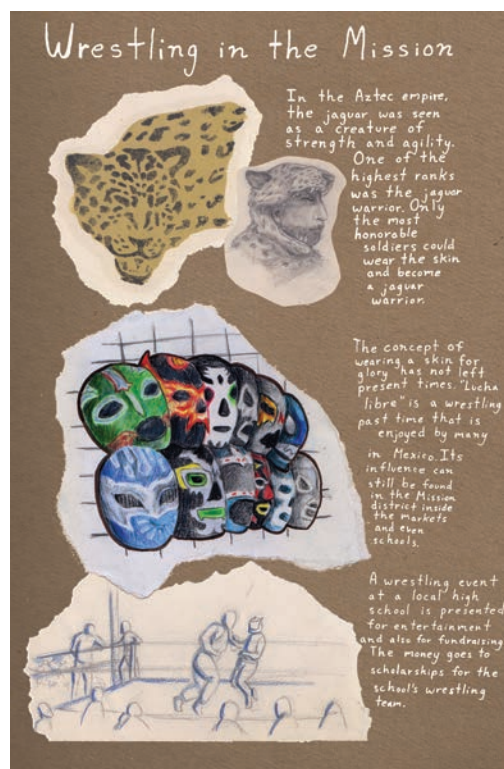 Wrestling in the Mission
In the Aztec empire,
the jaguar was seen
as a creature of
strength and agility.
One of the
highest ranks
was the jaguar
warrior. Only
the most
honorable
soldiers could
wear the skin
and become
a jaguar
warrior.
The concept of
wearing a skin for
glory has not left
present times. "Lucha
libre" is a wrestling
past time that is
enjoyed by many
in Mexico. Its
influence can
still be found
in the Mission
district inside
the markets
and even
schools.
A wrestling event
at a local high
school is presented
for entertainment
and also for fundraising
The money goes to
scholarships for the
school's wrestling
team.